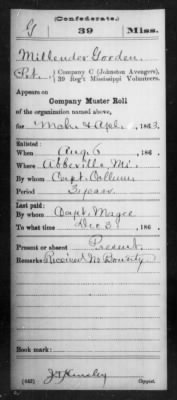 (Confederate.)
G 39 Miss.
Millender Gorden
Pvt., Company C (Johnston Avengers),
39 Reg't Mississippi Volunteers.
Appears on
Company Muster Roll
of the organization named above,
for Mch & Apl, 1863.
Enlisted:
When Aug 6, 186 .
Where Abbeville Mi.
By whom Capt. Collum
Period 3 years
Last paid:
By whom Capt. Magee
To what time Dec 31, 186 .
Present or absent Present
Remarks: Received No Bounty
Book mark:
(642)
Copyist.